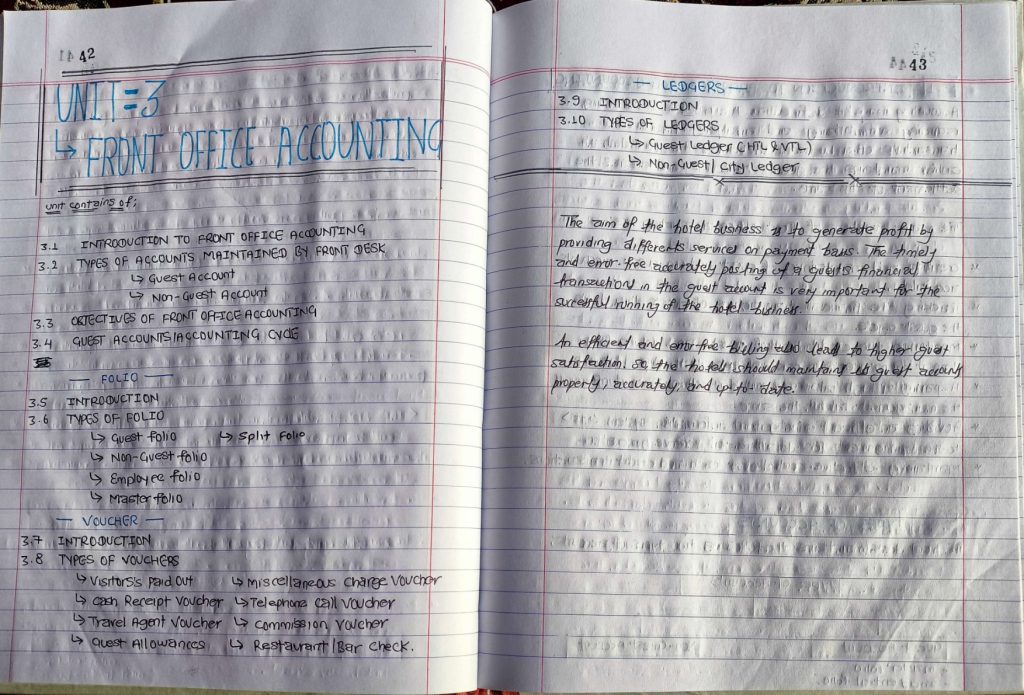 42
UNIT=3
↳ FRONT OFFICE ACCOUNTING
unit contains of;
3.1 INTRODUCTION TO FRONT OFFICE ACCOUNTING
3.2 TYPES OF ACCOUNTS MAINTAINED BY FRONT DESK
↳ Guest Account
↳ Non-Guest Account
3.3 OBJECTIVES OF FRONT OFFICE ACCOUNTING
3.4 GUEST ACCOUNTS/ACCOUNTING CYCLE
— FOLIO —
3.5 INTRODUCTION
3.6 TYPES OF FOLIO
↳ Guest folio ↳ Split Folio
↳ Non-Guest folio
↳ Employee folio
↳ Master folio
— VOUCHER —
3.7 INTRODUCTION
3.8 TYPES OF VOUCHERS
↳ Visitors's Paid Out ↳ Miscellaneous Charge Voucher
↳ Cash Receipt Voucher ↳ Telephone Call Voucher
↳ Travel Agent Voucher ↳ Commission Voucher
↳ Guest Allowances ↳ Restaurant/Bar Check.
43
— LEDGERS —
3.9 INTRODUCTION
3.10 TYPES OF LEDGERS
↳ Guest Ledger (HTL & VTL)
↳ Non-Guest/City Ledger
The aim of the hotel business is to generate profit by
providing differents services on payment basis. The timely
and error-free accurately posting of a guest's financial
transaction in the guest account is very important for the
successful running of the hotel business.
An efficient and error-free billing also leads to higher guest
satisfaction, so, the hotels should maintain its guest account
properly, accurately and up-to-date.